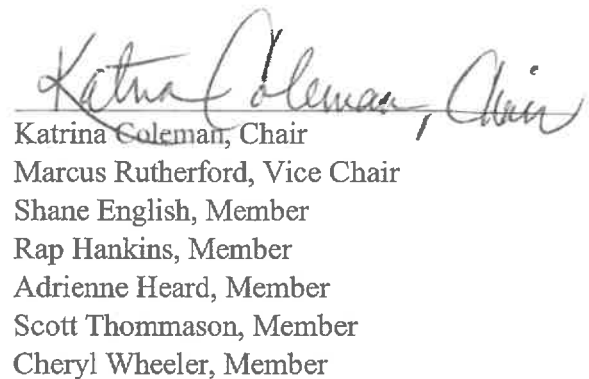 Katrina Coleman, Chair
Katrina Coleman, Chair
Marcus Rutherford, Vice Chair
Shane English, Member
Rap Hankins, Member
Adrienne Heard, Member
Scott Thommason, Member
Cheryl Wheeler, Member